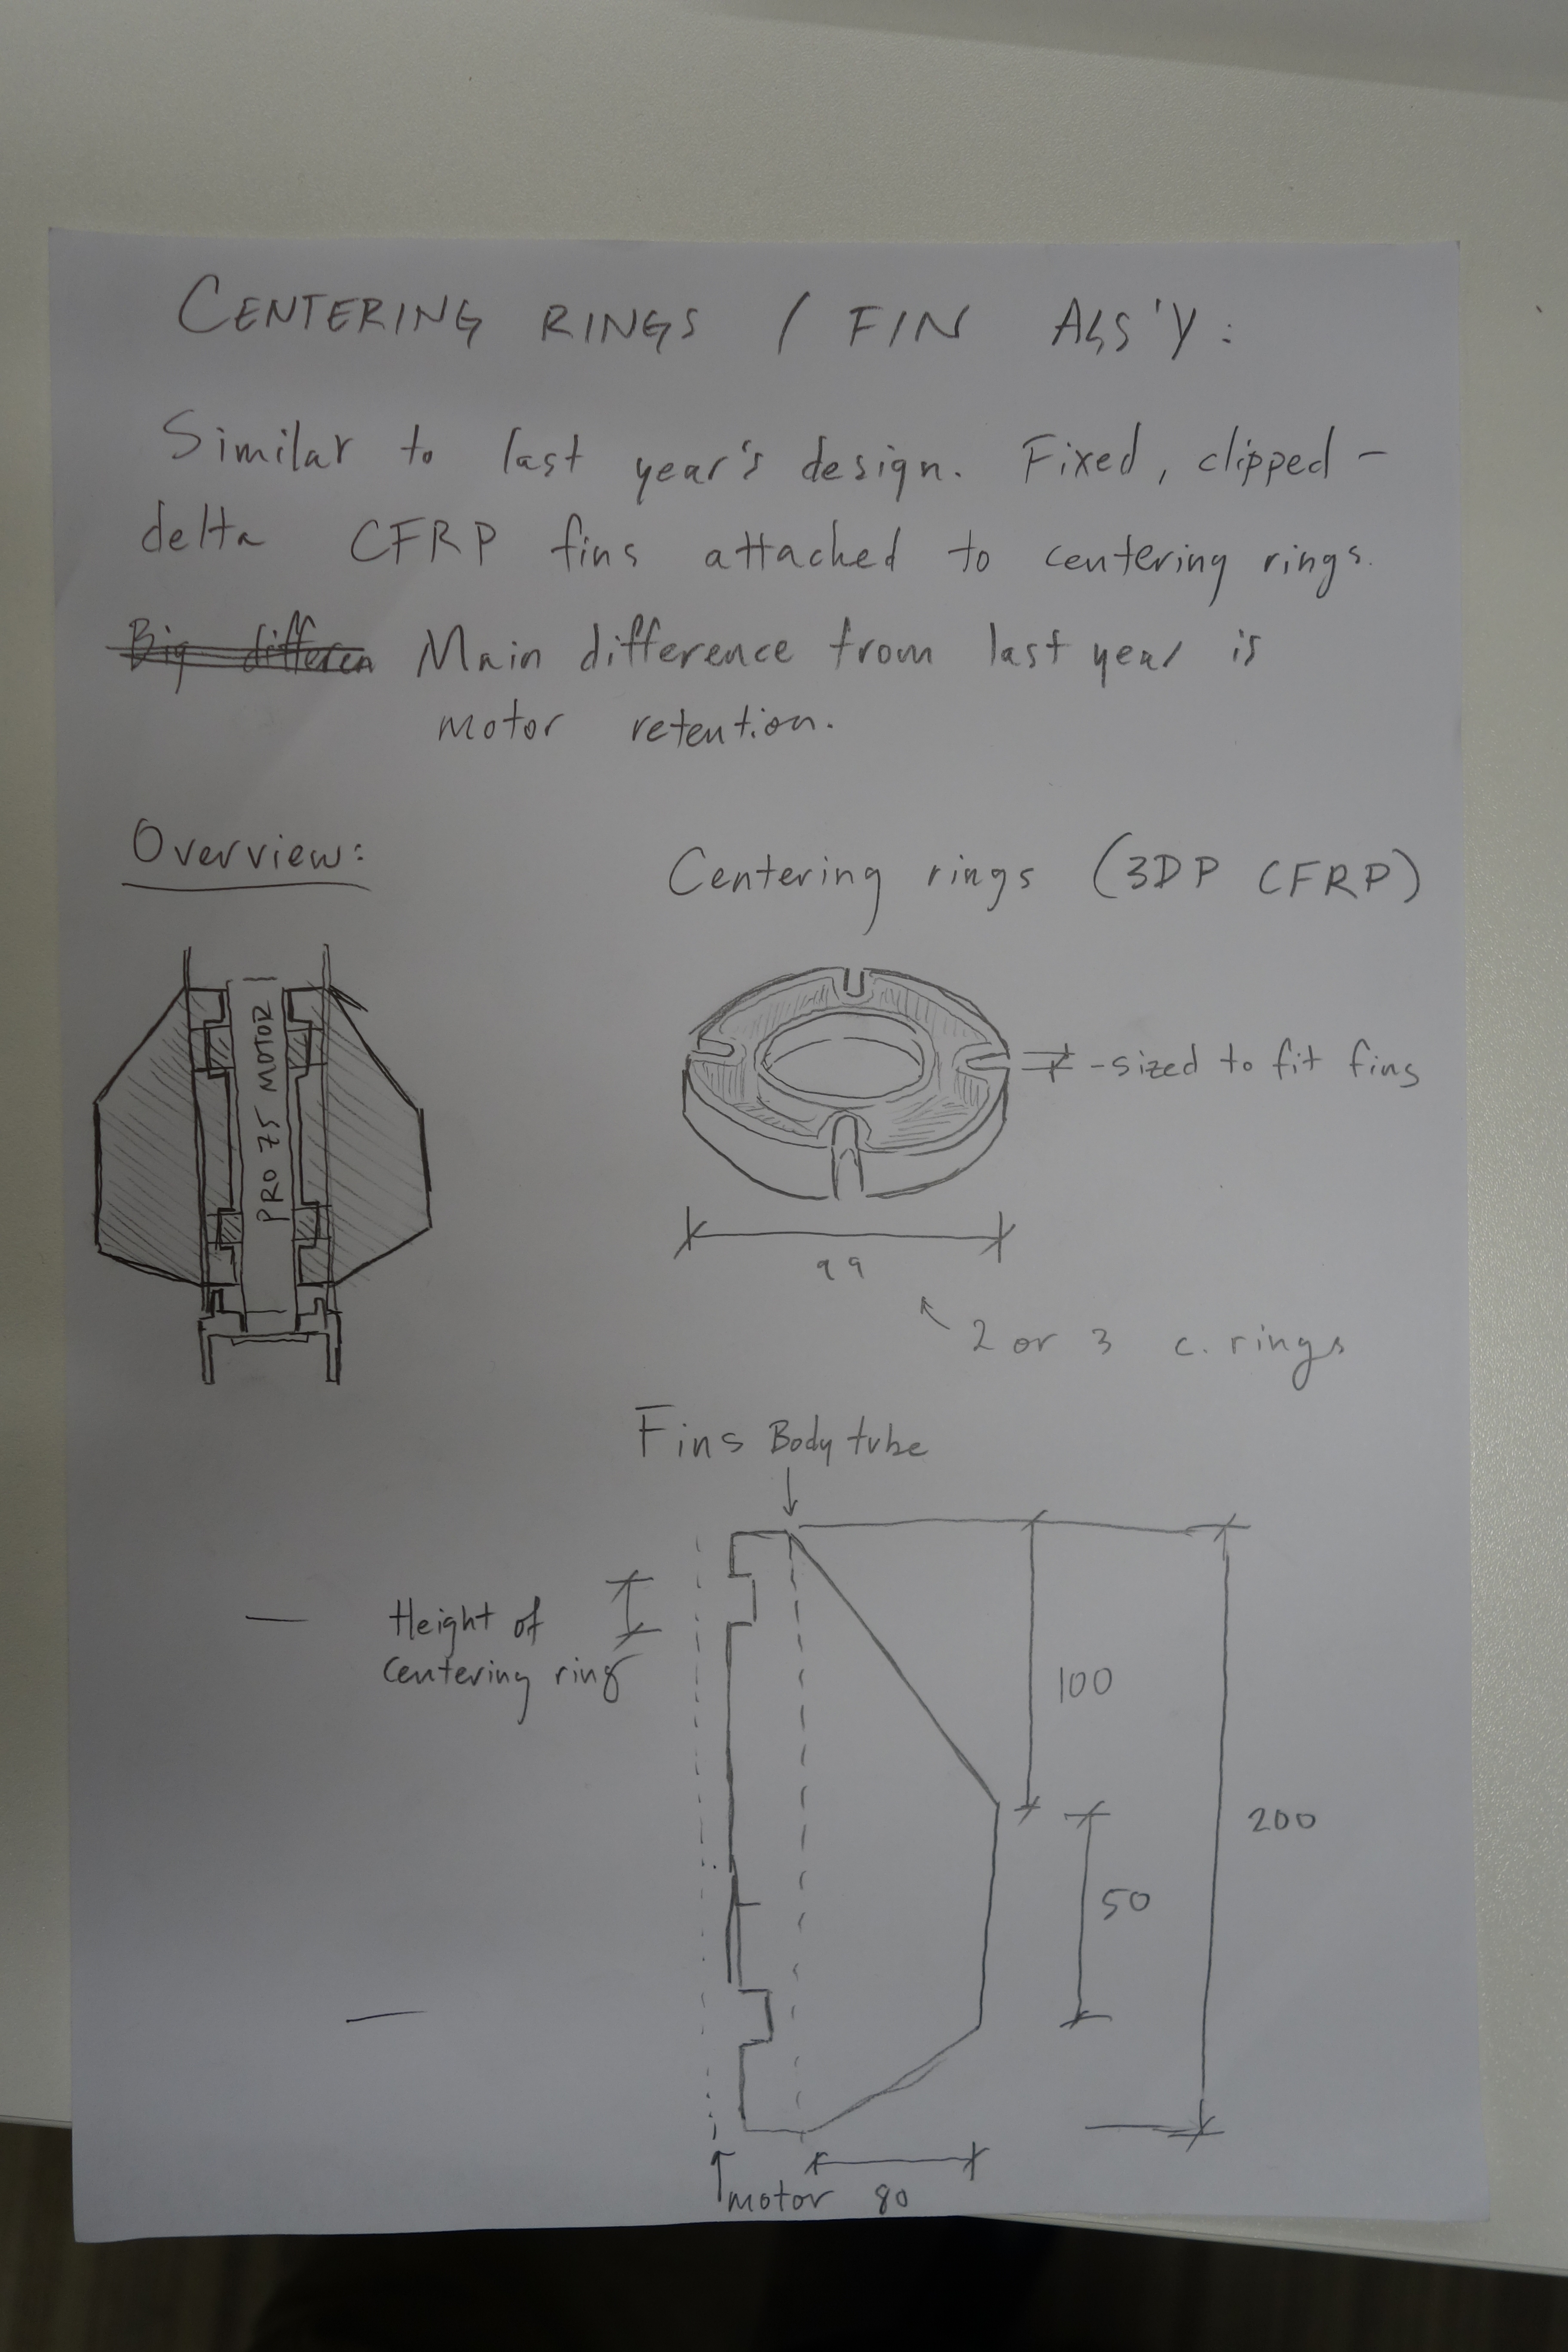 CENTERING RINGS / FIN ASS'Y:
Similar to last year's design. Fixed, clipped-
delta CFRP fins attached to centering rings.
Big differen Main difference from last year is
motor retention.
Overview:
Centering rings (3DP CFRP)
PRO 75 MOTOR
-sized to fit fins
99
2 or 3 c. rings
Fins Body tube
Height of
centering ring
100
200
50
motor 80